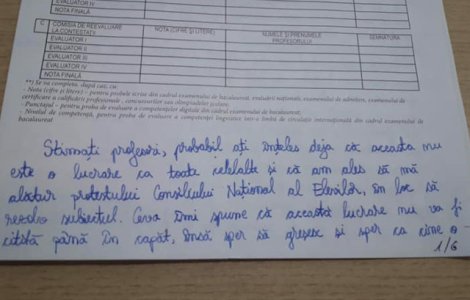 EVALUATOR IV
NOTA FINALĂ
C COMISIA DE REEVALUARE LA CONTESTAȚII NOTA (CIFRE ȘI LITERE) NUMELE ȘI PRENUMELE PROFESORULUI SEMNĂTURA
EVALUATOR I
EVALUATOR II
EVALUATOR III
EVALUATOR IV
NOTA FINALĂ
**) Se va completa, după caz, cu:
- Nota (cifre și litere) - pentru probele scrise din cadrul examenului de bacalaureat, evaluării naționale, examenului de admitere, examenului de
certificare a calificării profesionale, concursurilor sau olimpiadelor școlare.
- Punctajul - pentru proba de evaluare a competențelor digitale din cadrul examenului de bacalaureat.
- Nivelul de competență, pentru proba de evaluare a competenței lingvistice într-o limbă de circulație internațională din cadrul examenului de
bacalaureat.
Stimați profesori, probabil ați înțeles deja că aceasta nu
este o lucrare ca toate celelalte și că am ales să mă
alătur protestului Consiliului Național al Elevilor, în loc să
rezolv subiectul. Ceva îmi spune că această lucrare nu va fi
citită până în capăt, însă sper să greșesc și sper ca cine o
1/6